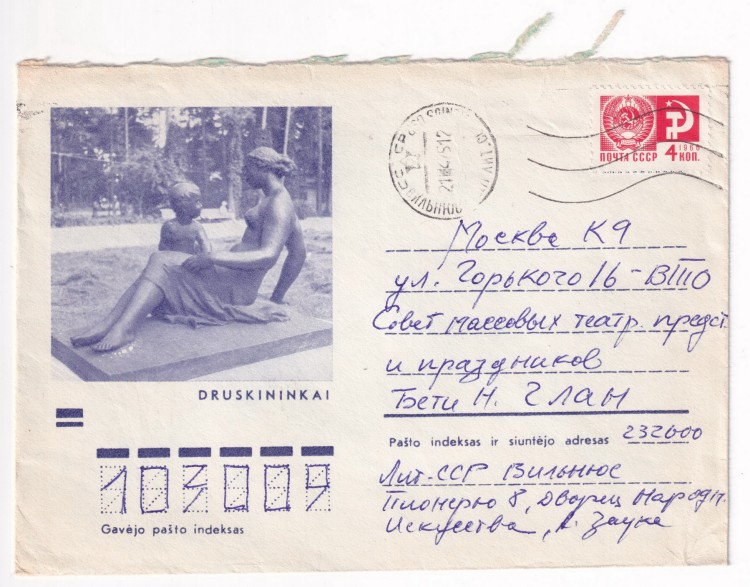 ПОЧТА СССР
1966
4 КОП.
ВИЛЬНЮС
Москва К9
ул. Горького 16-ВТО
Совет массовых театр. предст.
и праздников
Бети Н. Глан
DRUSKININKAI
Pašto indeksas ir siuntėjo adresas 232600
Лит-ССР Вильнюс
Пионерю 8, Дворец Народн.
Искусства,
103009
Gavėjo pašto indeksas